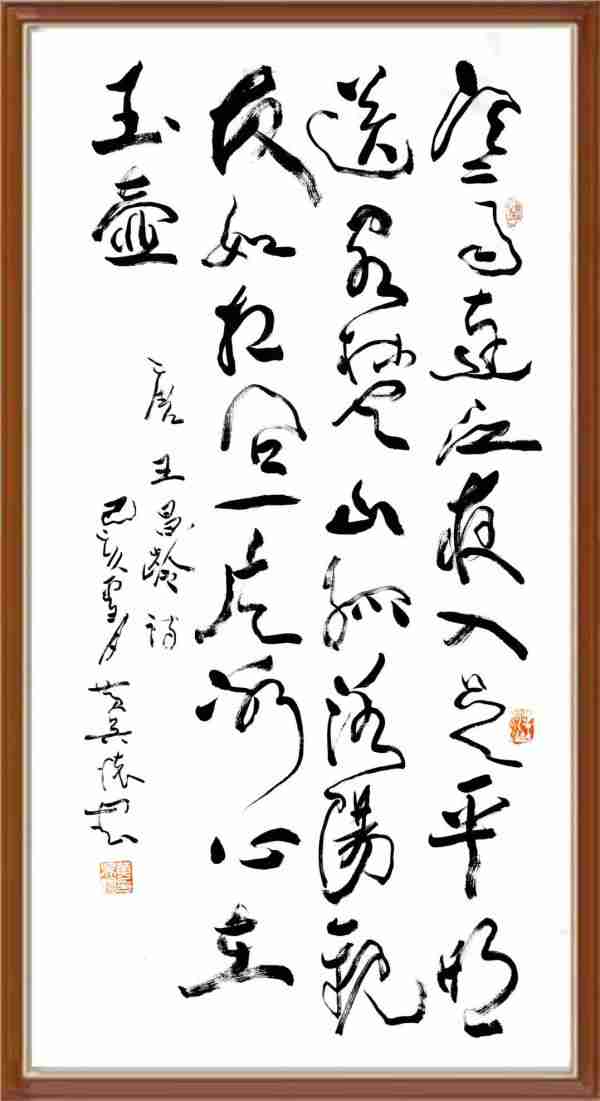 寒雨連江夜入吴平明
送客楚山孤洛陽親
友如相问一片冰心在
玉壺
唐王昌齡詩
己亥雪月黄